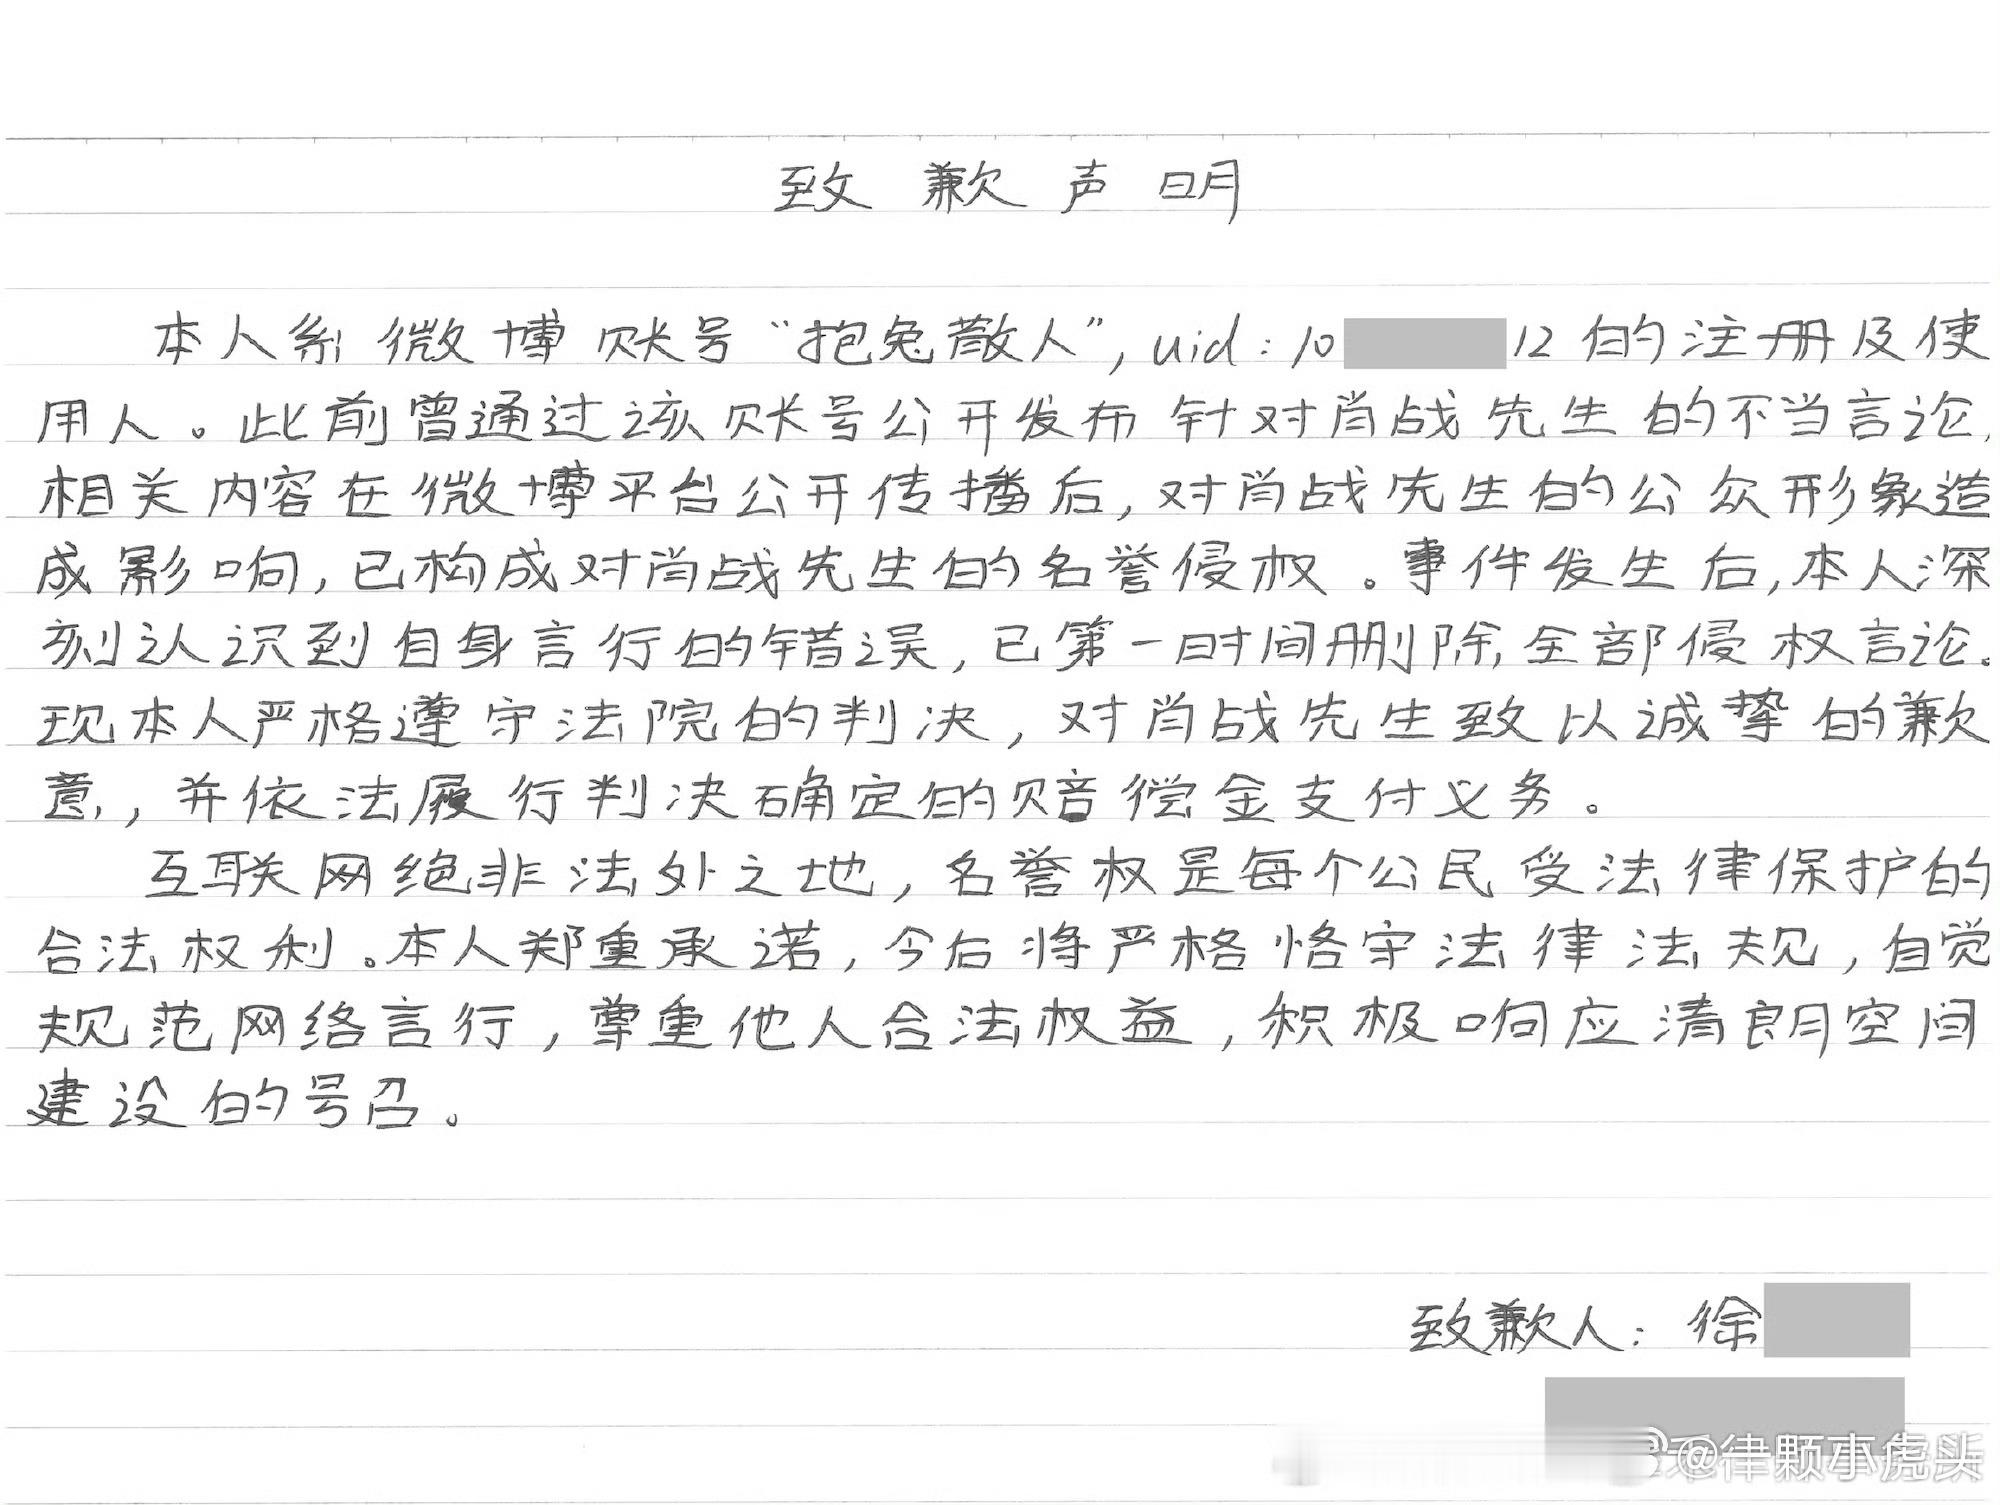 致歉声明
本人系微博账号“抱兔散人”，uid：10 12的注册及使
用人。此前曾通过该账号公开发布针对肖战先生的不当言论，
相关内容在微博平台公开传播后，对肖战先生的公众形象造
成影响，已构成对肖战先生的名誉侵权。事件发生后，本人深
刻认识到自身言行的错误，已第一时间删除全部侵权言论。
现本人严格遵守法院的判决，对肖战先生致以诚挚的歉
意，并依法履行判决确定的赔偿金支付义务。
互联网绝非法外之地，名誉权是每个公民受法律保护的
合法权利。本人郑重承诺，今后将严格恪守法律法规，自觉
规范网络言行，尊重他人合法权益，积极响应清朗空间
建设的号召。
致歉人：徐
@律颗小虎头